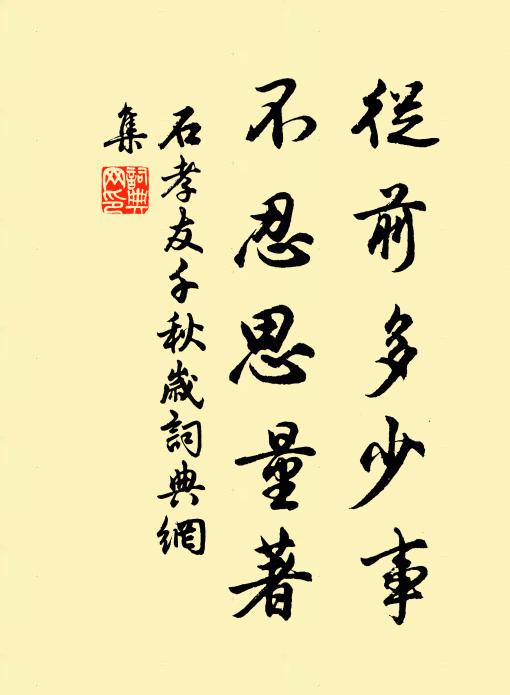 從前多少事
不忍思量著
石孝友千秋歲詞典網
集
詞典網印